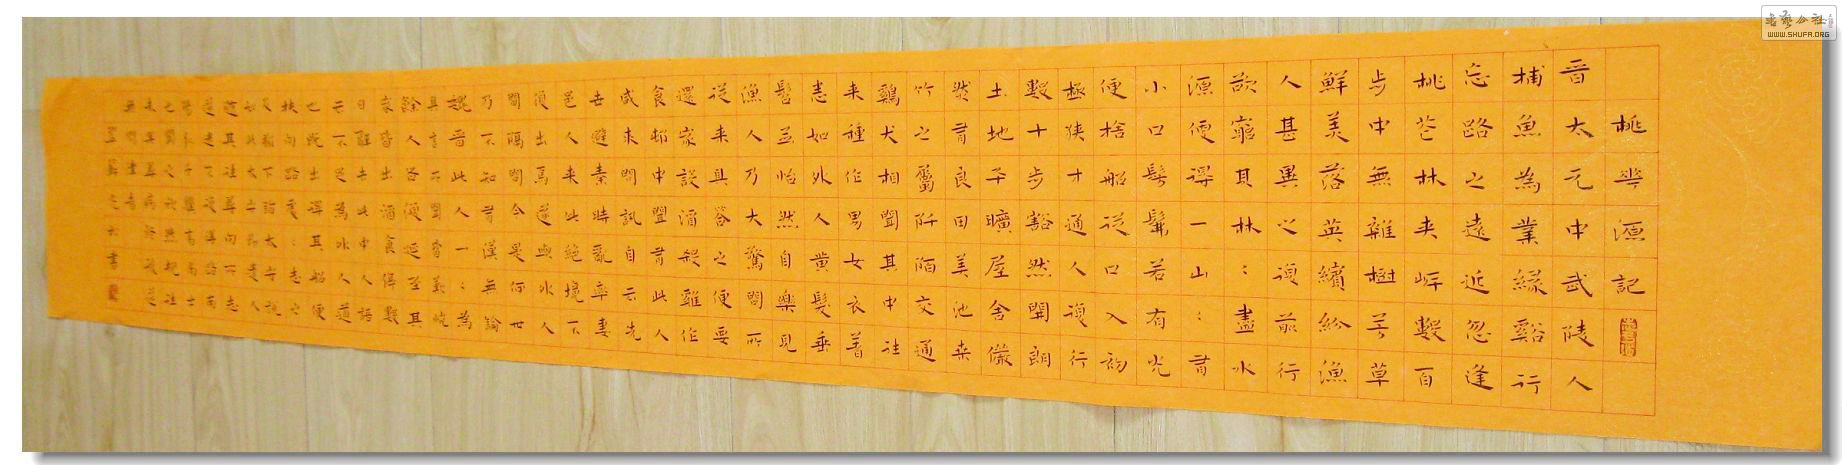 桃華源記
晉太元中武陵人
捕魚為業緣谿行
忘路之遠近忽逢
桃花林夾岸數百
步中無雜樹芳草
鮮美落英繽紛漁
人甚異之復前行
欲窮其林：盡水
源便得一山：有
小口髣髴若有光
便捨船從口入初
極狹才通人復行
數十步豁然開朗
土地平曠屋舍儼
然有良田美池桑
竹之屬阡陌交通
雞犬相聞其中往
来種作男女衣著
悉如外人黃髮垂
髫並怡然自樂見
漁人乃大驚問所
從来具答之便要
還家設酒殺雞作
食邨中聞有此人
咸来問訊自云先
世避秦時亂率妻
邑人来此絕境不
復出焉遂與外人
間隔問今是何世
乃不知有漢無論
魏晉此人一：為
具言所聞皆歎惋
餘人各復延至其
家皆出酒食停數
日辭去此中人語
云不足為外人道
也既出得其船便
扶向路處：志之
及郡下詣太守說
如此太守即遣人
隨其往尋向所志
遂迷不復得路南
陽劉子驥高尚士
也聞之欣然規往
未果尋病終後遂
無問津者
WWW.SHUFA.ORG